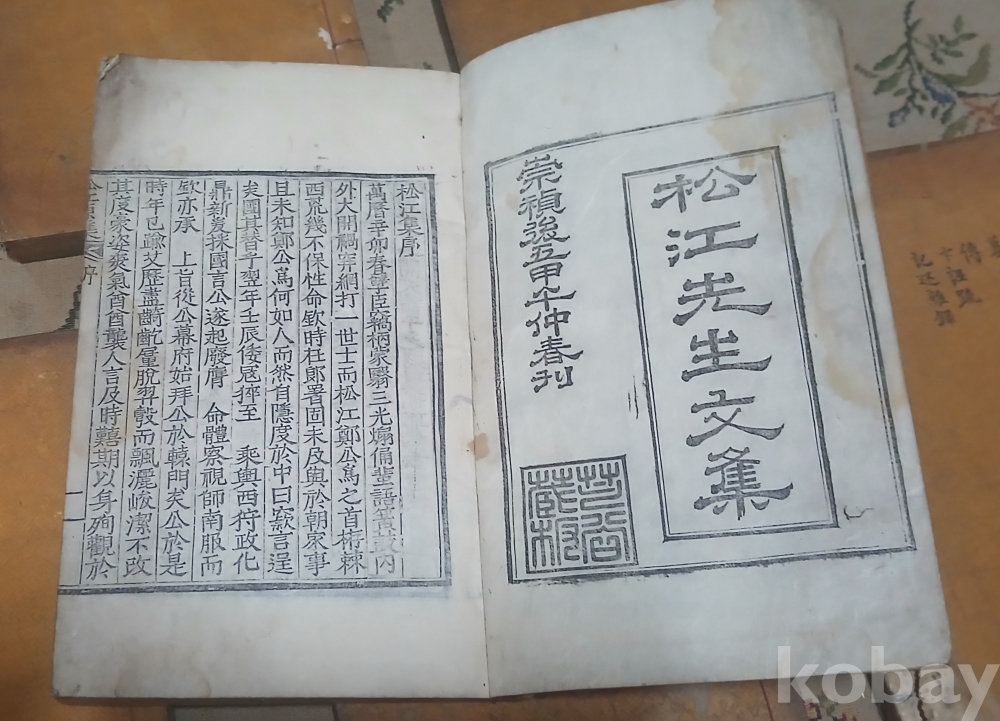 松江先生文集
崇禎後五甲午仲春刊
藏板
松江集序
萬曆辛卯春孽臣竊柄蒙翳三光煽俏萋語簧鼓內
外大開羂穽網打一世士而松江鄭公爲之首栫棘
西荒幾不保性命欽時在郞署固未及與於朝家事
且未知鄭公爲何如人而然自隱度於中曰窾言逞
矣國其昏乎翌年壬辰倭寇猝至 乘輿西狩政化
鼎新爰採國言公遂起廢膺 命體察視師南服而
欽亦承 上旨後公幕府始拜公於轅門矣公於是
時年已踰艾歷盡齮齕脫羿彀而飄灑峻潔不改
其度豪姿爽氣酋酋襲人言及時囏期以身殉觀於
序
一
kobay